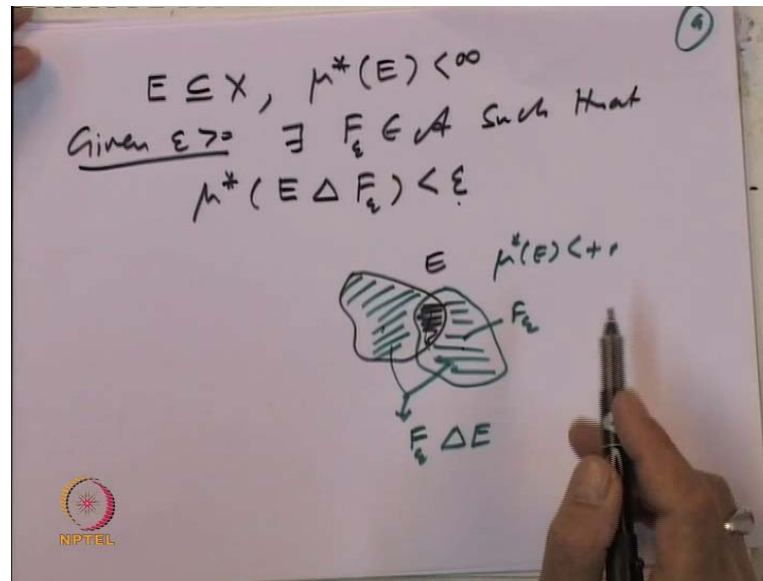 9
E ⊆ X, μ*(E) < ∞
Given ε > 0 ∃ F_ε ∈ A such that
μ*(E Δ F_ε) < ε
E μ*(E) < +
F_ε
F_ε Δ E
NPTEL